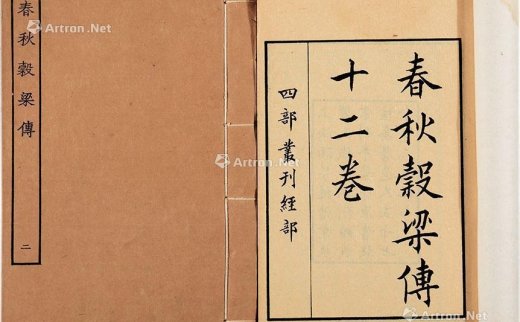 春秋穀梁傳
二
春秋穀梁傳
十二卷
四部叢刊經部
Artron.Net
Artron.Net
Artron.Net
Artron.Net
Artron.Net